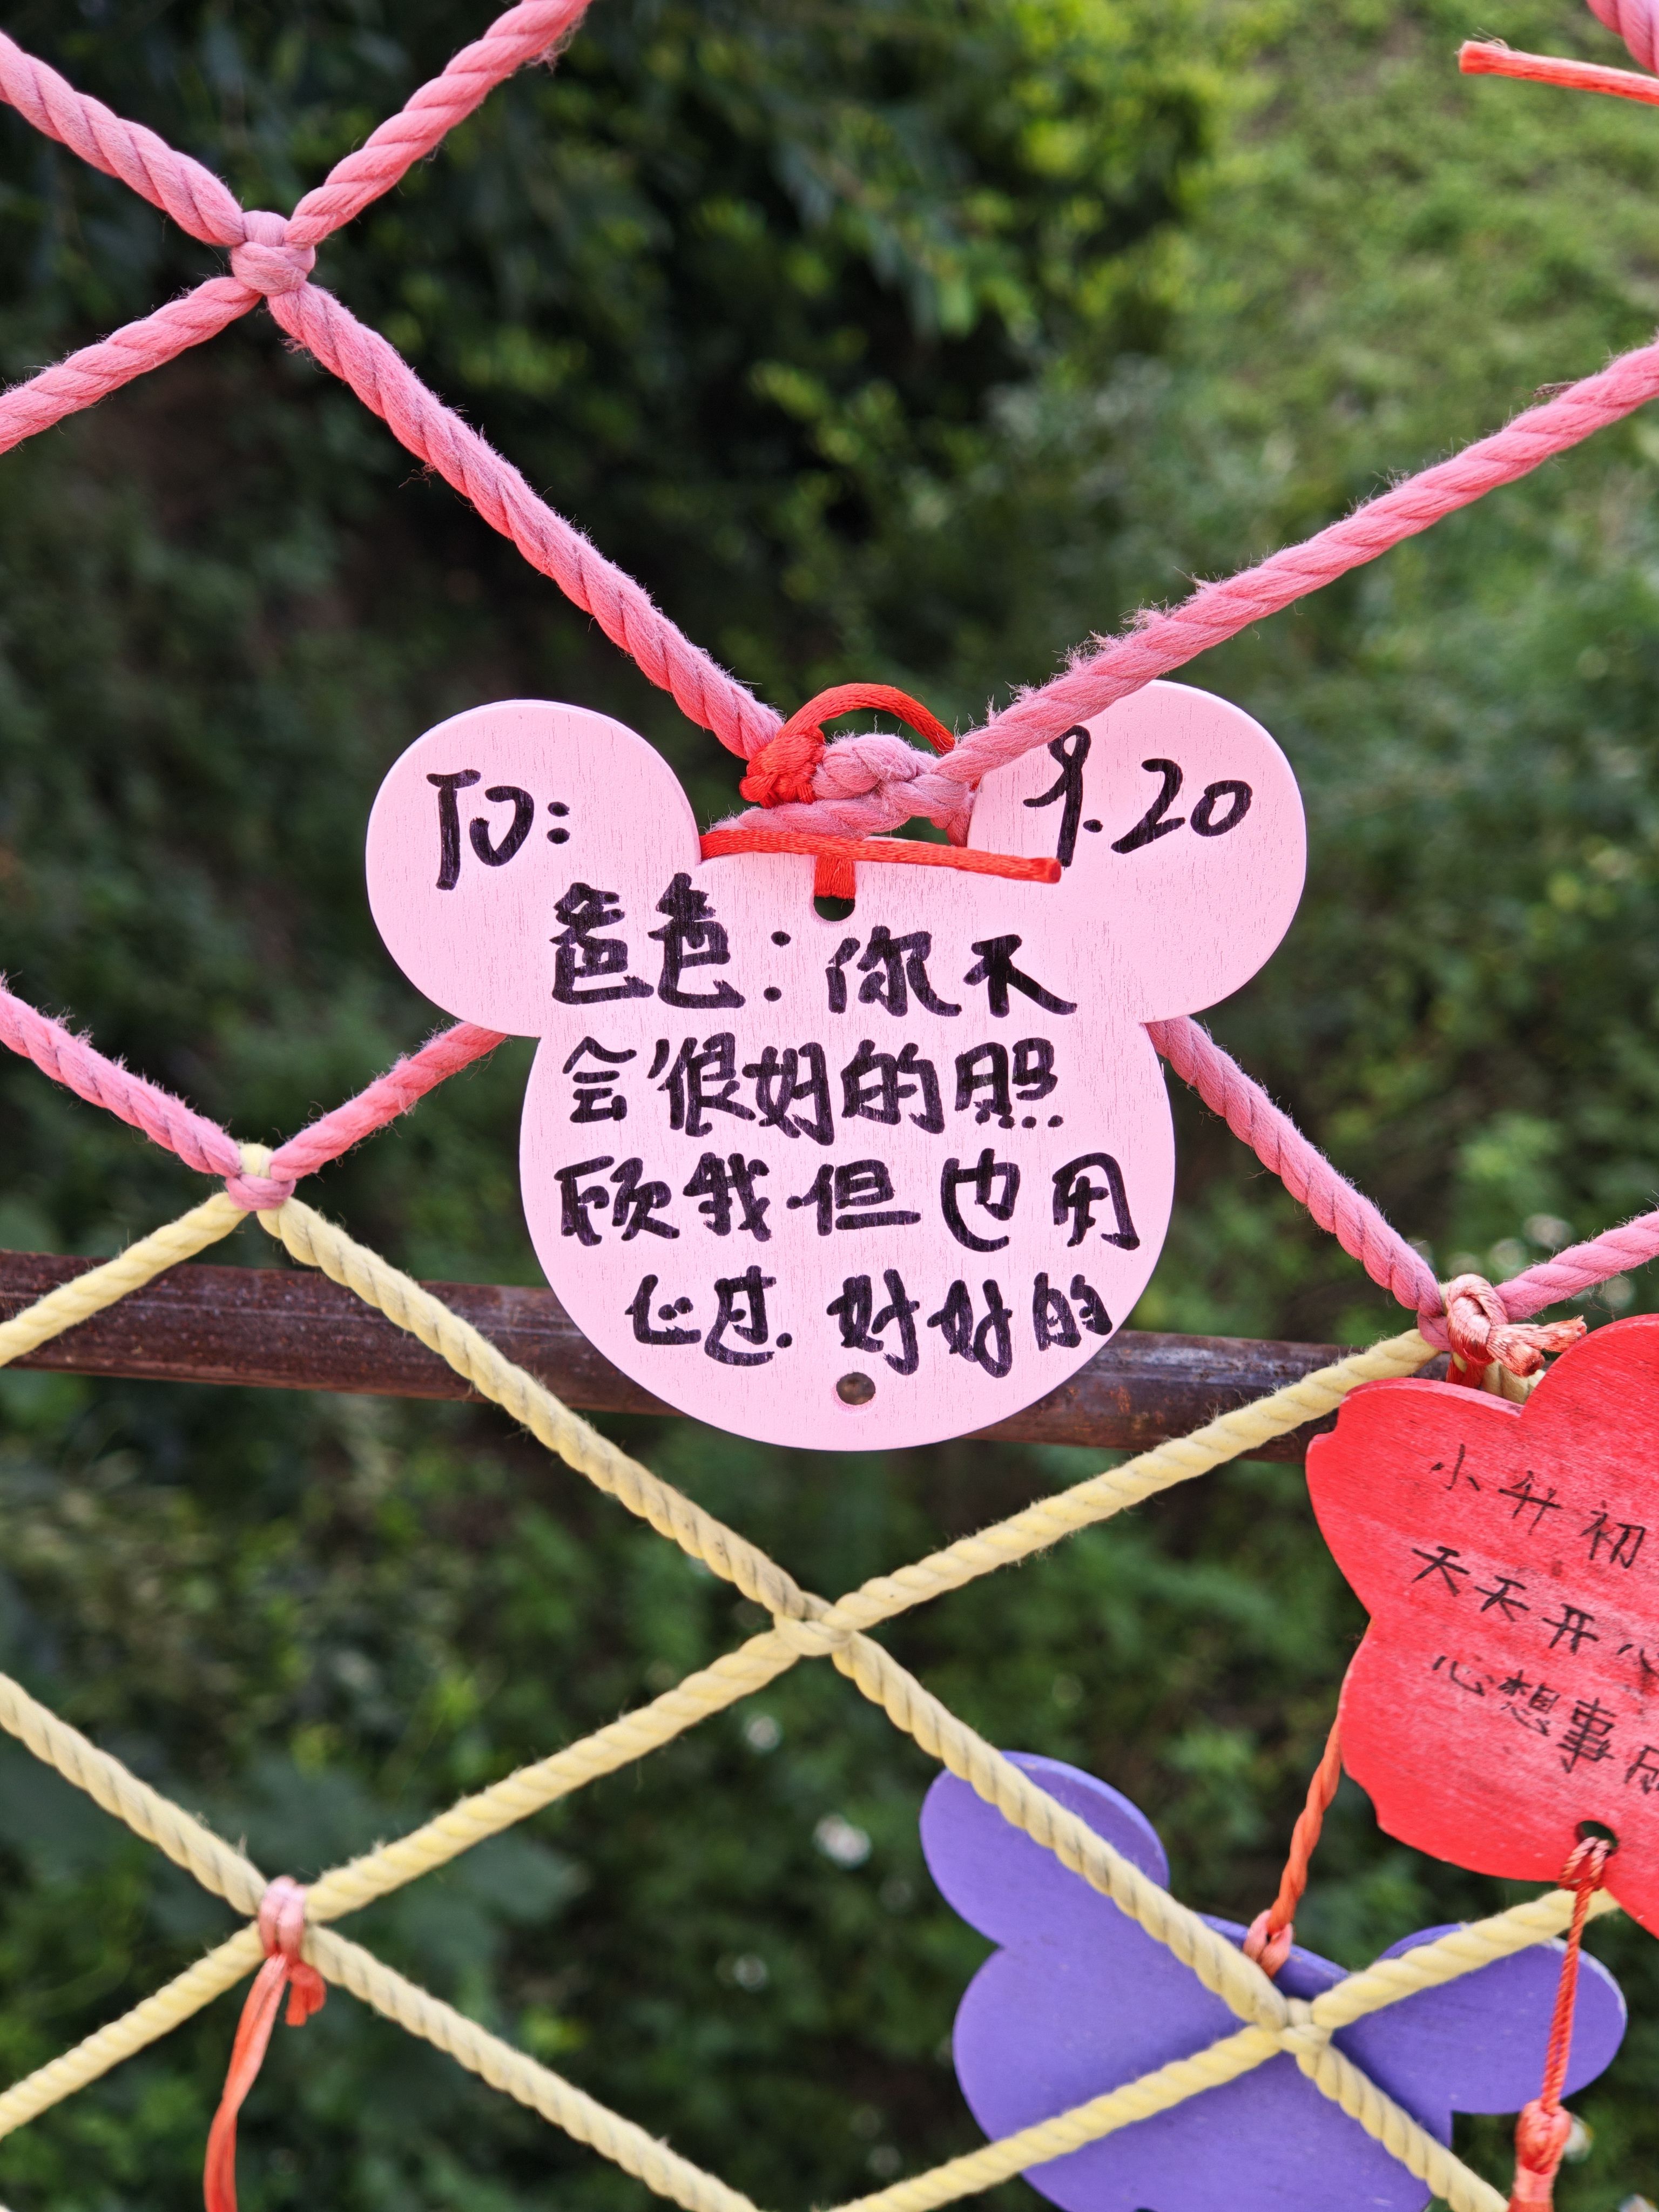 To:
9.20
爸爸:你不
会很好的照
顾我但也用
心过.好好的
小升初
天天开心
心想事成